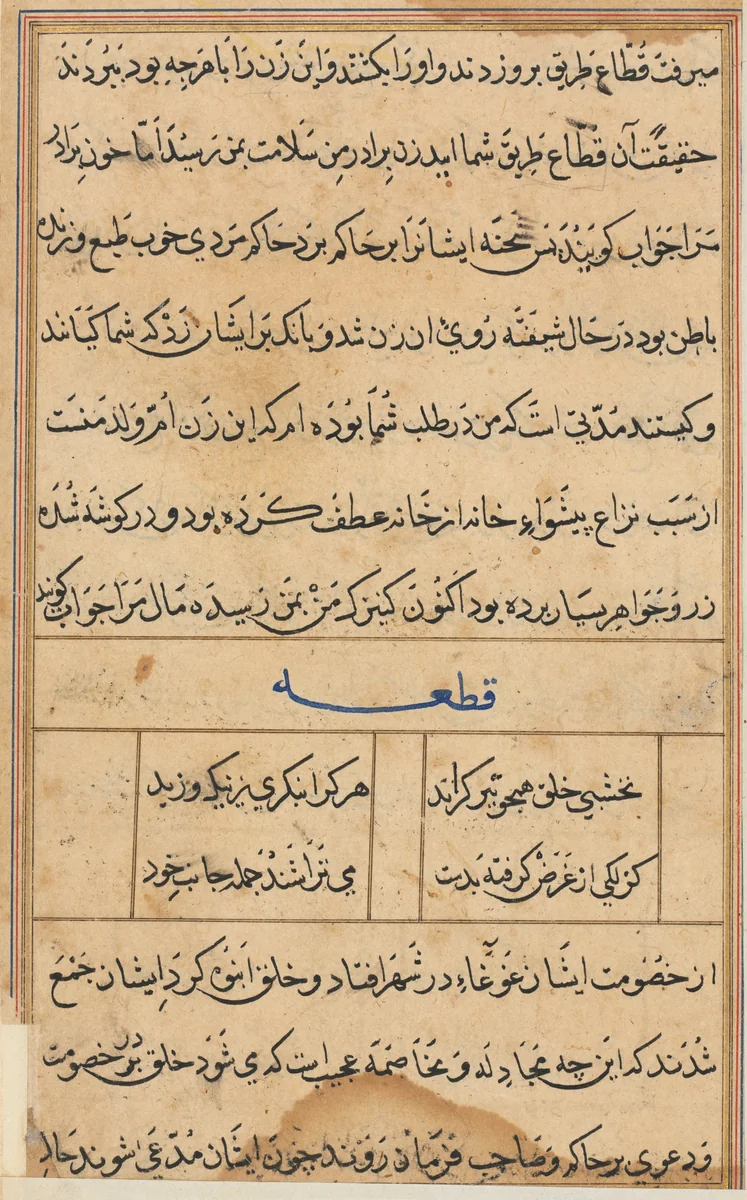 میرفت قُطّاع طریق برو زدند و او را بکشتند و این زن را با هرچه بود ببردند
حقیقت آن قطّاع طریق شما ایید زن برادر من سلامت بمن رسید امّا خون برادر
مرا جواب کویید پس شحنه ایشانرا بر حاکم برد حاکم مردی خوب طبع و زنده
باطن بود در حال شیفته روی ان زن شد و بانک بر ایشان زد که شما کیانند
و کیستند مدّتی است که من در طلب شما بوده ام که این زن امّ ولد منست
از سبب نزاع پیشواء خانه از خانه عطف کرده بود و در کوشه شده
زر و جواهر بسیار برده بود اکنون کنیزک من بمن رسیده مال مرا جواب کویند
قطعه
نخشبی خلق همچو تیر کراند هر کرا بنکری ز نیک و ز بد
کزلکی از غرض کرفته بدست می تراشند جمله جانب خود
از خصومت ایشان غوغاء در شهر افتاد و خلق انبوه کرد ایشان جمع
شدند که این چه مجادله و مخاصمه عجیب است که می شود خلق در خصومت
و دعوی بر حاکم و صاحب فرمان روند چون ایشان مدّعی شوند حال